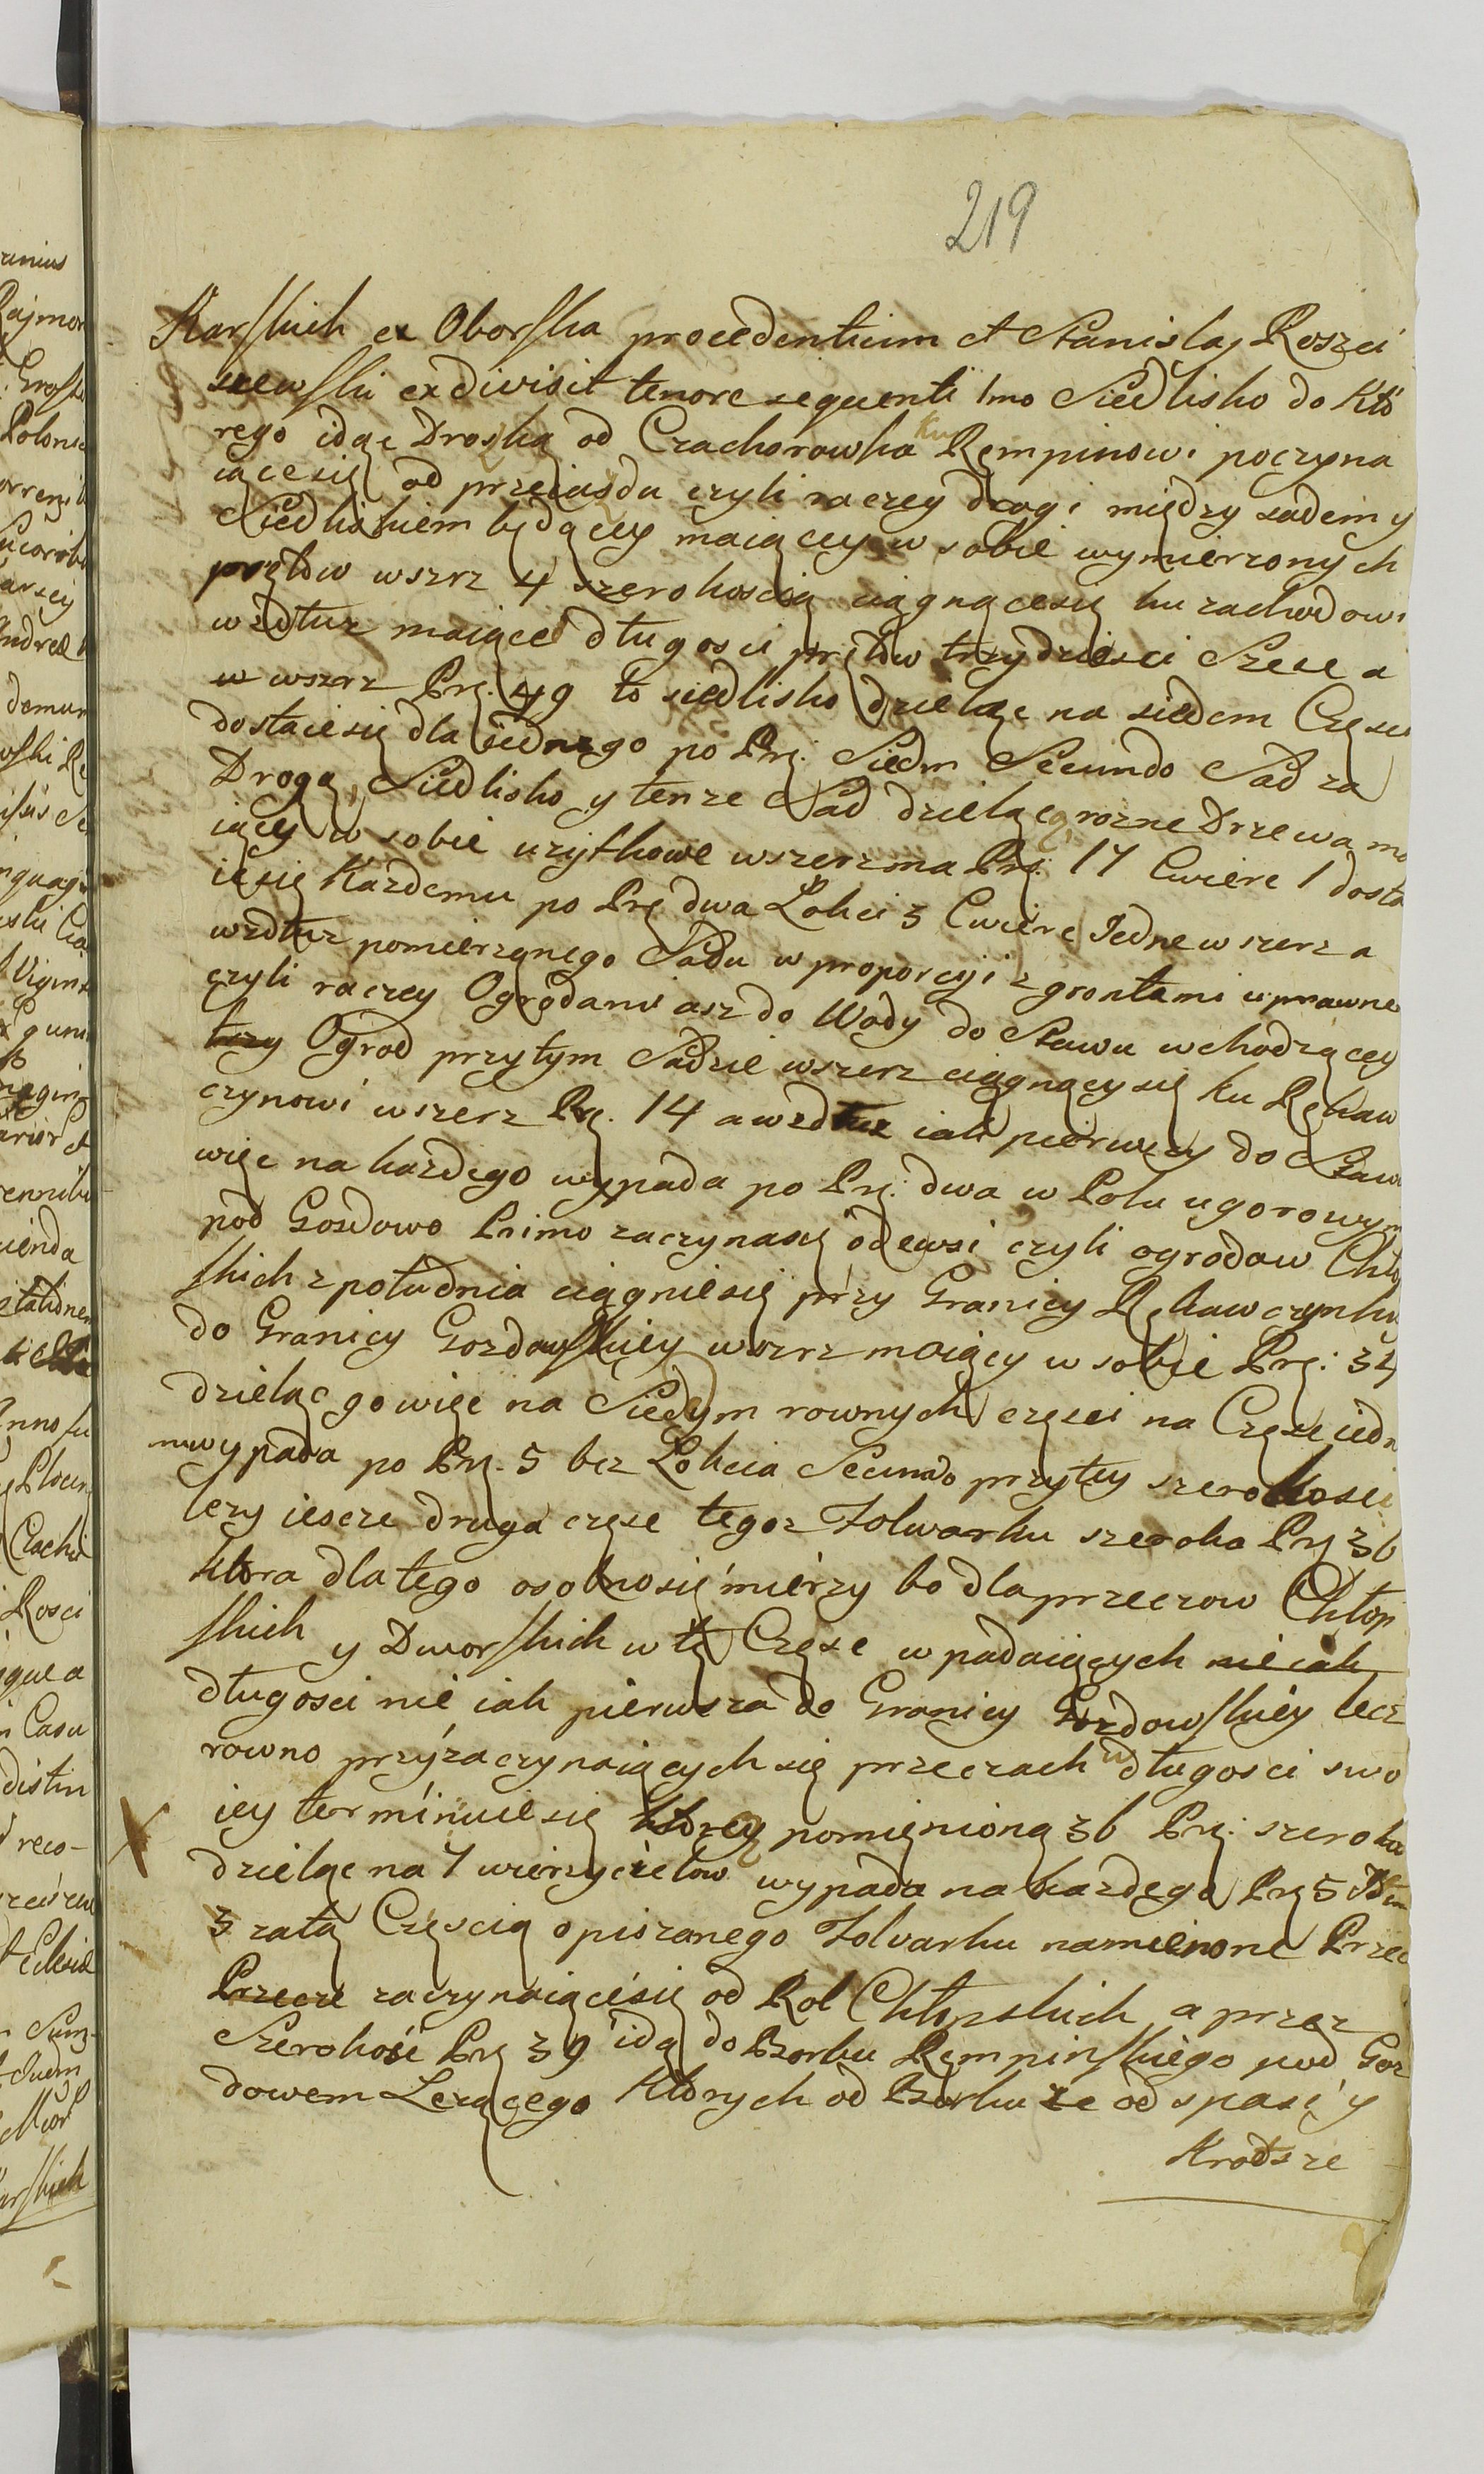 219
Karskich ex Oborska procedentium et Stanislaj Roszci
szewski exdivisit tenore sequenti 1mo Siedlisko do Któ
rego idąc Droską od Czachorowka ku Rempinowi poczyna
iącesię od przeiazdu czyli raczey drogi między sadem y
Siedliskiem będącey maiącey w sobie wymierzonych
prętów wszrz 4 szerokoscią ciągnącesię ku zachodowi
wzdłuz maiące długosci prętów trzydziesci Szesc a
w wszrz Prę. 49 to siedlisko dzieląc na siedem Częsci
dostaiesię dla iednego po Prę: Siedm Secundo Sad za
Drogą, Siedlisko y tenze Sad dzielącą rozne Drzewa ma
iący w sobie uzytkowe wszerz ma Prę: 17 Cwierc 1 dosta
iesię Kazdemu po Prę dwa Łokci 3 Cwierc Jedne wszerz a
wzdłuz pomierzonego Sadu w proporcyi z grontami uprawne
czyli raczey Ogrodami asz do Wody do Stawu wchodzącey
trzy Ogrod przytym Sadzie wszerz ciągnącysię ku Rękaw
czynowi wszerz Prę. 14 a wzdłuz iak pierwszy do Stawu
więc na kazdego wypada po Prę: dwa w Polu ugorowym
pod Gozdowo Primo zaczynasię odewsi czyli ogrodow Chło
skich z południa ciągniesię przy Granicy Rękawczynku
do Granicy Gozdowskiey wszrz maiący w sobie Prę: 34
dzieląc go więc na Siedym rownych częsci na Częsc iedn
ną wypada po Prę. 5 bez Łokcia Secundo przytey szerokosci
lezy iescze druga częsc tegoz Folwarku szeroka Prę 36
ktora dla tego osobno się mierzy bo dla przeczow Chłop
skich y Dworskich w tę Częsc wpadaiących nie iak
długosci nie iak pierwsza do Granicy Gozdowskiey lecz
rowno przy zaczynaiących się przeczach w długosci swo
iey terminuiesię ktorey pomienioną 36 Prę: szeroka
dzieląc na 7 wierzycielow wypada na kazdego Prę 5 Item
3 za tą Częscią opisanego Folwarku namienione Przec
Przecze zaczynaiącesię od Rol Chłopskich a przez
Szerokosc Prę 39 idą do Borku Rempinskiego pod Goz
dowem Lezącego Ktorych od Borku ze od spasi y
Krotsze